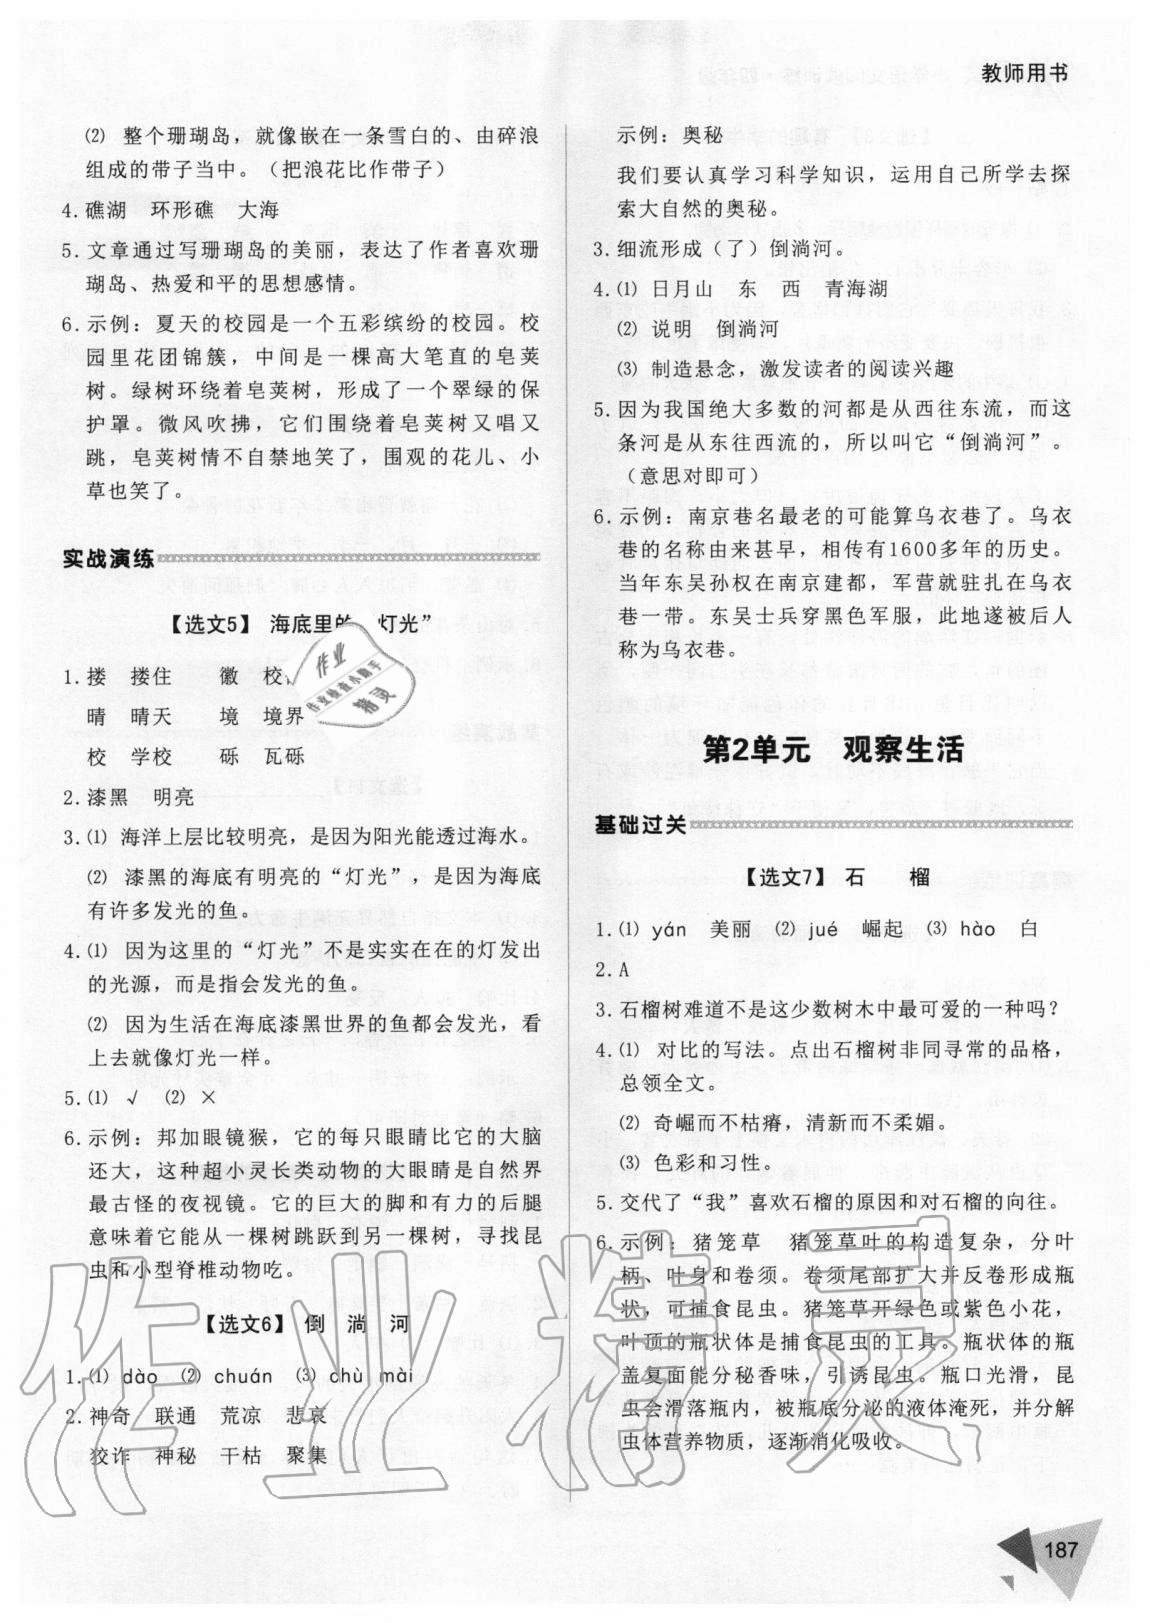 教师用书
⑵ 整个珊瑚岛，就像嵌在一条雪白的、由碎浪
组成的带子当中。（把浪花比作带子）
4. 礁湖 环形礁 大海
5. 文章通过写珊瑚岛的美丽，表达了作者喜欢珊
瑚岛、热爱和平的思想感情。
6. 示例：夏天的校园是一个五彩缤纷的校园。校
园里花团锦簇，中间是一棵高大笔直的皂荚
树。绿树环绕着皂荚树，形成了一个翠绿的保
护罩。微风吹拂，它们围绕着皂荚树又唱又
跳，皂荚树情不自禁地笑了，围观的花儿、小
草也笑了。
实战演练
【选文5】 海底里的“灯光”
1. 搂 搂住 徽 校
晴 晴天 境 境界
校 学校 砾 瓦砾
2. 漆黑 明亮
3. ⑴ 海洋上层比较明亮，是因为阳光能透过海水。
⑵ 漆黑的海底有明亮的“灯光”，是因为海底
有许多发光的鱼。
4. ⑴ 因为这里的“灯光”不是实实在在的灯发出
的光源，而是指会发光的鱼。
⑵ 因为生活在海底漆黑世界的鱼都会发光，看
上去就像灯光一样。
5. ⑴ √ ⑵ ×
6. 示例：邦加眼镜猴，它的每只眼睛比它的大脑
还大，这种超小灵长类动物的大眼睛是自然界
最古怪的夜视镜。它的巨大的脚和有力的后腿
意味着它能从一棵树跳跃到另一棵树，寻找昆
虫和小型脊椎动物吃。
【选文6】 倒 淌 河
1. ⑴ dào ⑵ chuán ⑶ chù mài
2. 神奇 联通 荒凉 悲哀
狡诈 神秘 干枯 聚集
示例：奥秘
我们要认真学习科学知识，运用自己所学去探
索大自然的奥秘。
3. 细流形成（了）倒淌河。
4. ⑴ 日月山 东 西 青海湖
⑵ 说明 倒淌河
⑶ 制造悬念，激发读者的阅读兴趣
5. 因为我国绝大多数的河都是从西往东流，而这
条河是从东往西流的，所以叫它“倒淌河”。
（意思对即可）
6. 示例：南京巷名最老的可能算乌衣巷了。乌衣
巷的名称由来甚早，相传有1600多年的历史。
当年东吴孙权在南京建都，军营就驻扎在乌衣
巷一带。东吴士兵穿黑色军服，此地遂被后人
称为乌衣巷。
第2单元 观察生活
基础过关
【选文7】 石 榴
1. ⑴ yán 美丽 ⑵ jué 崛起 ⑶ hào 白
2. A
3. 石榴树难道不是这少数树木中最可爱的一种吗？
4. ⑴ 对比的写法。点出石榴树非同寻常的品格，
总领全文。
⑵ 奇崛而不枯瘠，清新而不柔媚。
⑶ 色彩和习性。
5. 交代了“我”喜欢石榴的原因和对石榴的向往。
6. 示例：猪笼草 猪笼草叶的构造复杂，分叶
柄、叶身和卷须。卷须尾部扩大并反卷形成瓶
状，可捕食昆虫。猪笼草开绿色或紫色小花，
叶顶的瓶状体是捕食昆虫的工具。瓶状体的瓶
盖复面能分秘香味，引诱昆虫。瓶口光滑，昆
虫会滑落瓶内，被瓶底分泌的液体淹死，并分解
虫体营养物质，逐渐消化吸收。
187
作业
作业检查小助手
精灵
作业精灵